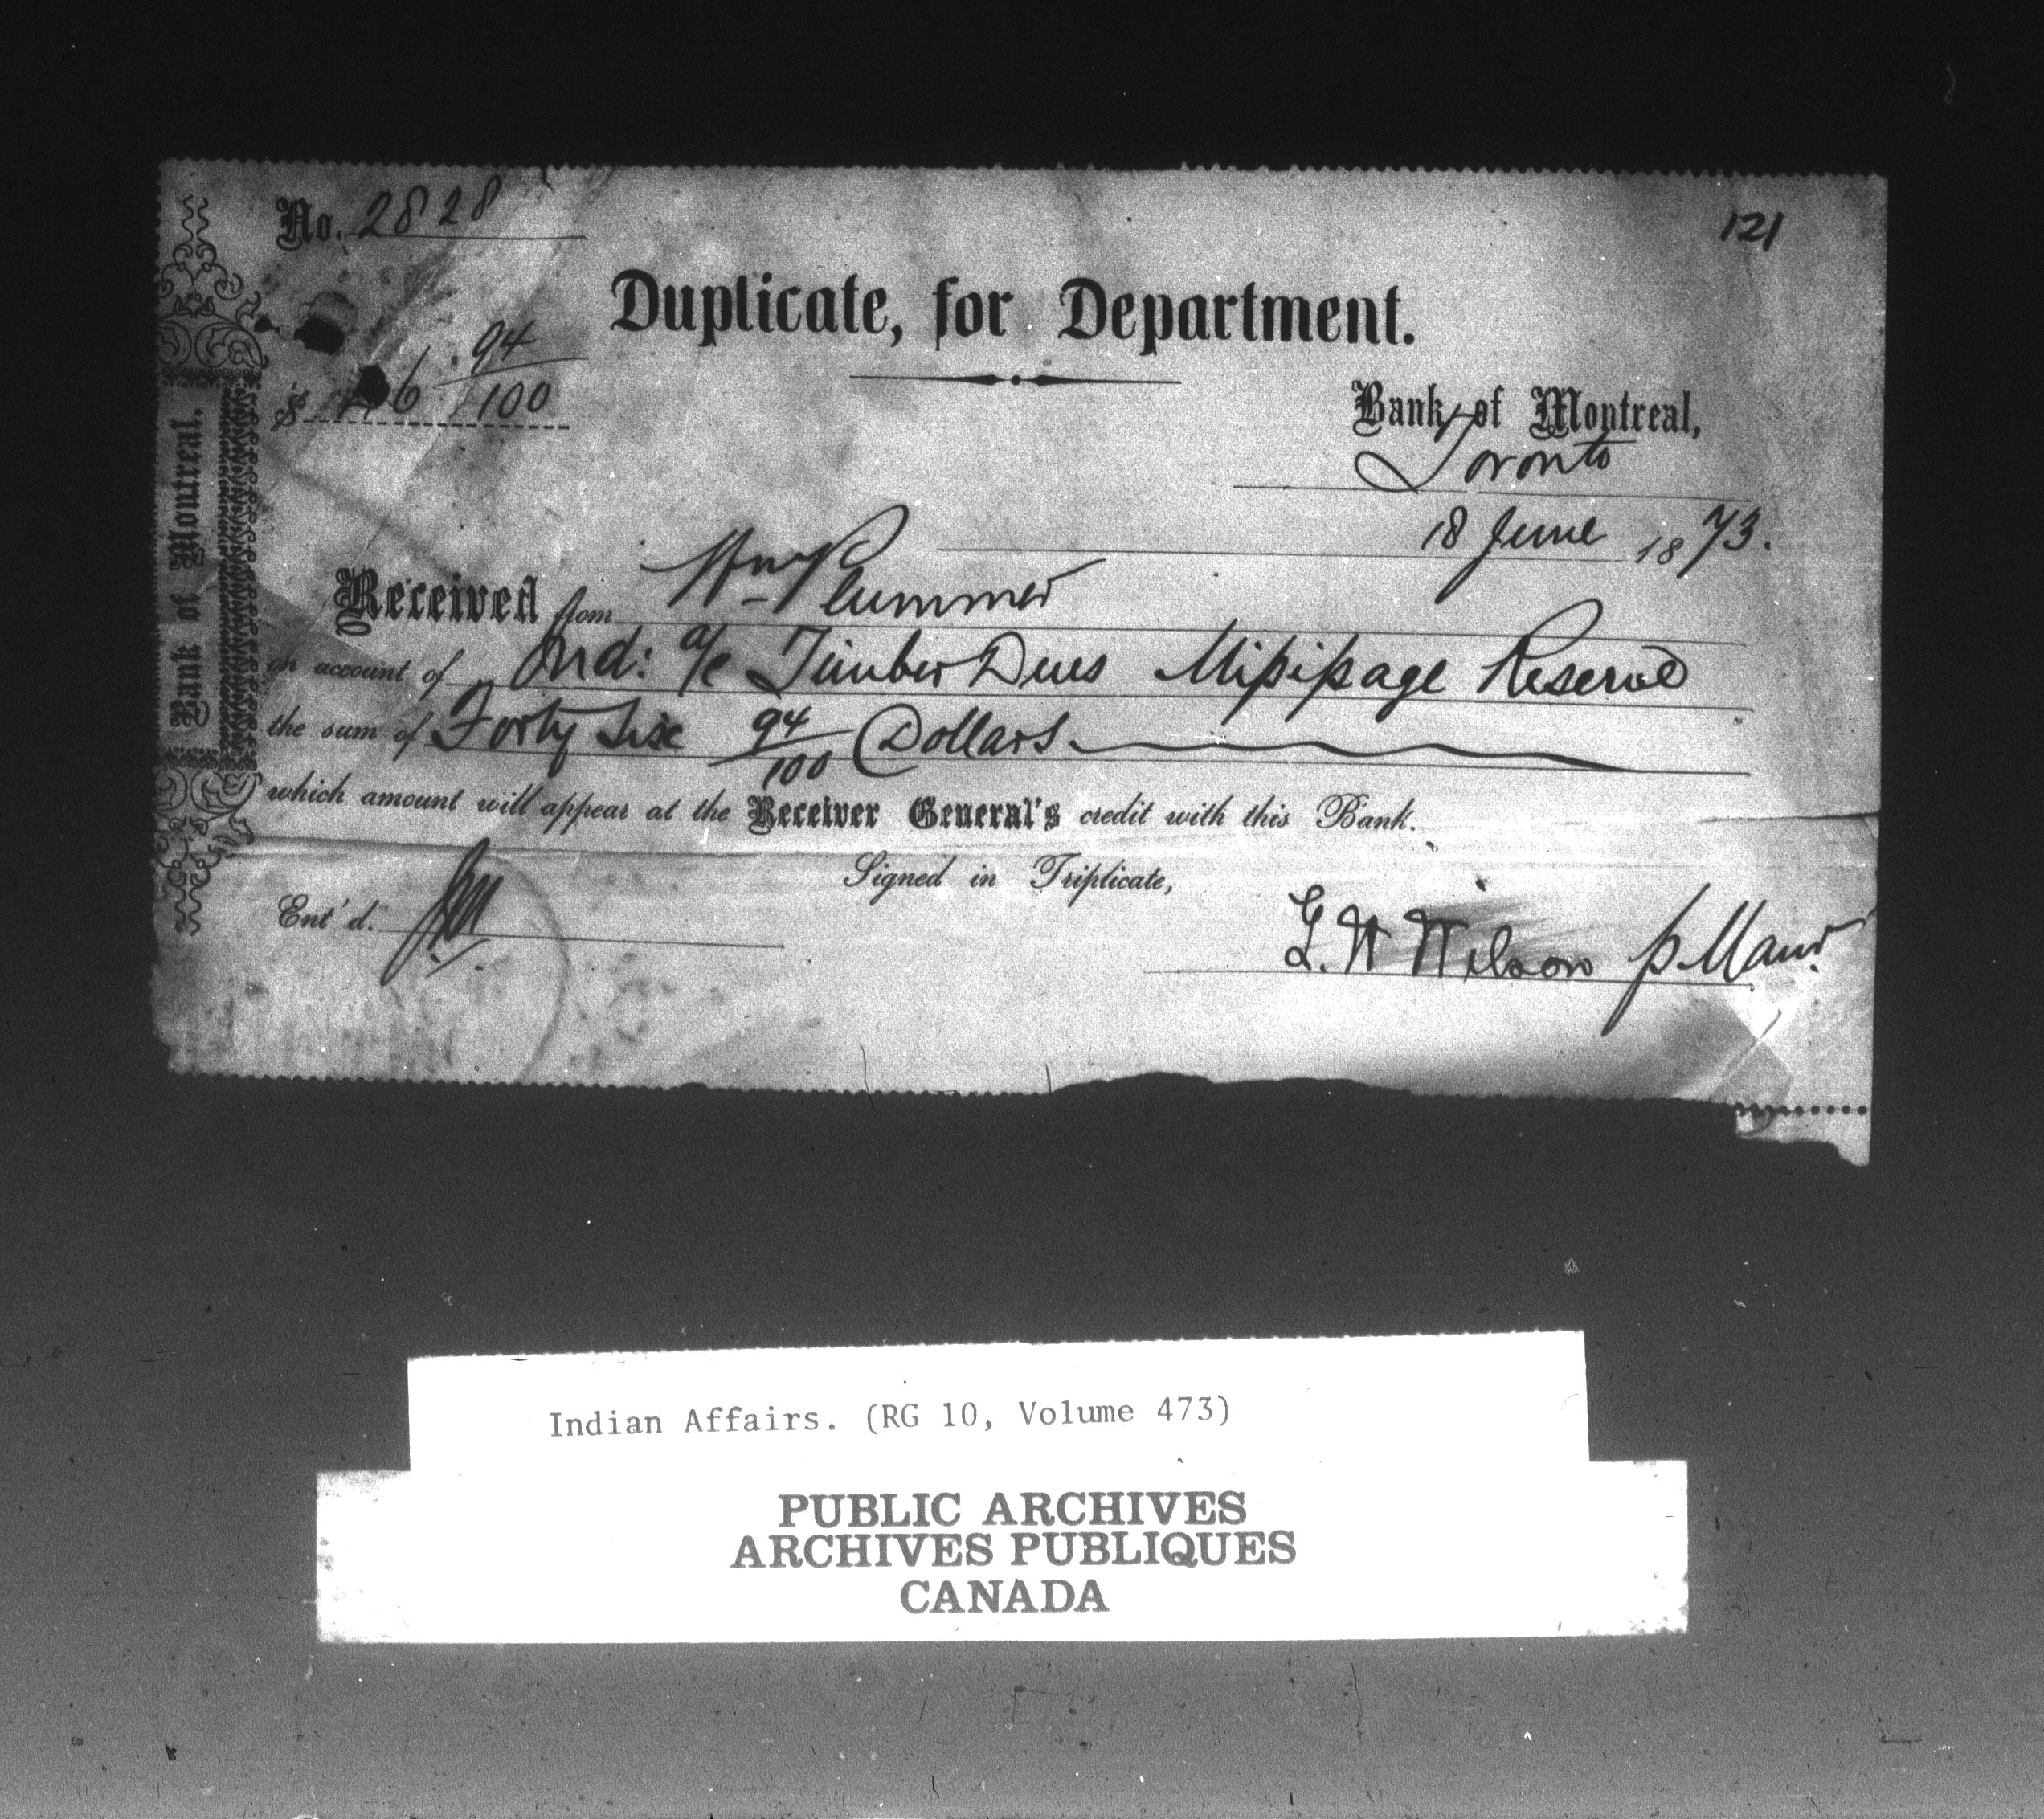 No. 2828
121
Duplicate, for Department.
$ 46 94/100
Bank of Montreal,
Toronto
18 June 1873.
Received from Wm Plummer
on account of Ind: a/c Timber Dues Mipipage Reserve
the sum of Forty Six 94/100 Dollars
which amount will appear at the Receiver General's credit with this Bank.
Signed in Triplicate,
Ent'd.
G. W Wilson p Manr.
Bank of Montreal.
Indian Affairs. (RG 10, Volume 473)
PUBLIC ARCHIVES
ARCHIVES PUBLIQUES
CANADA